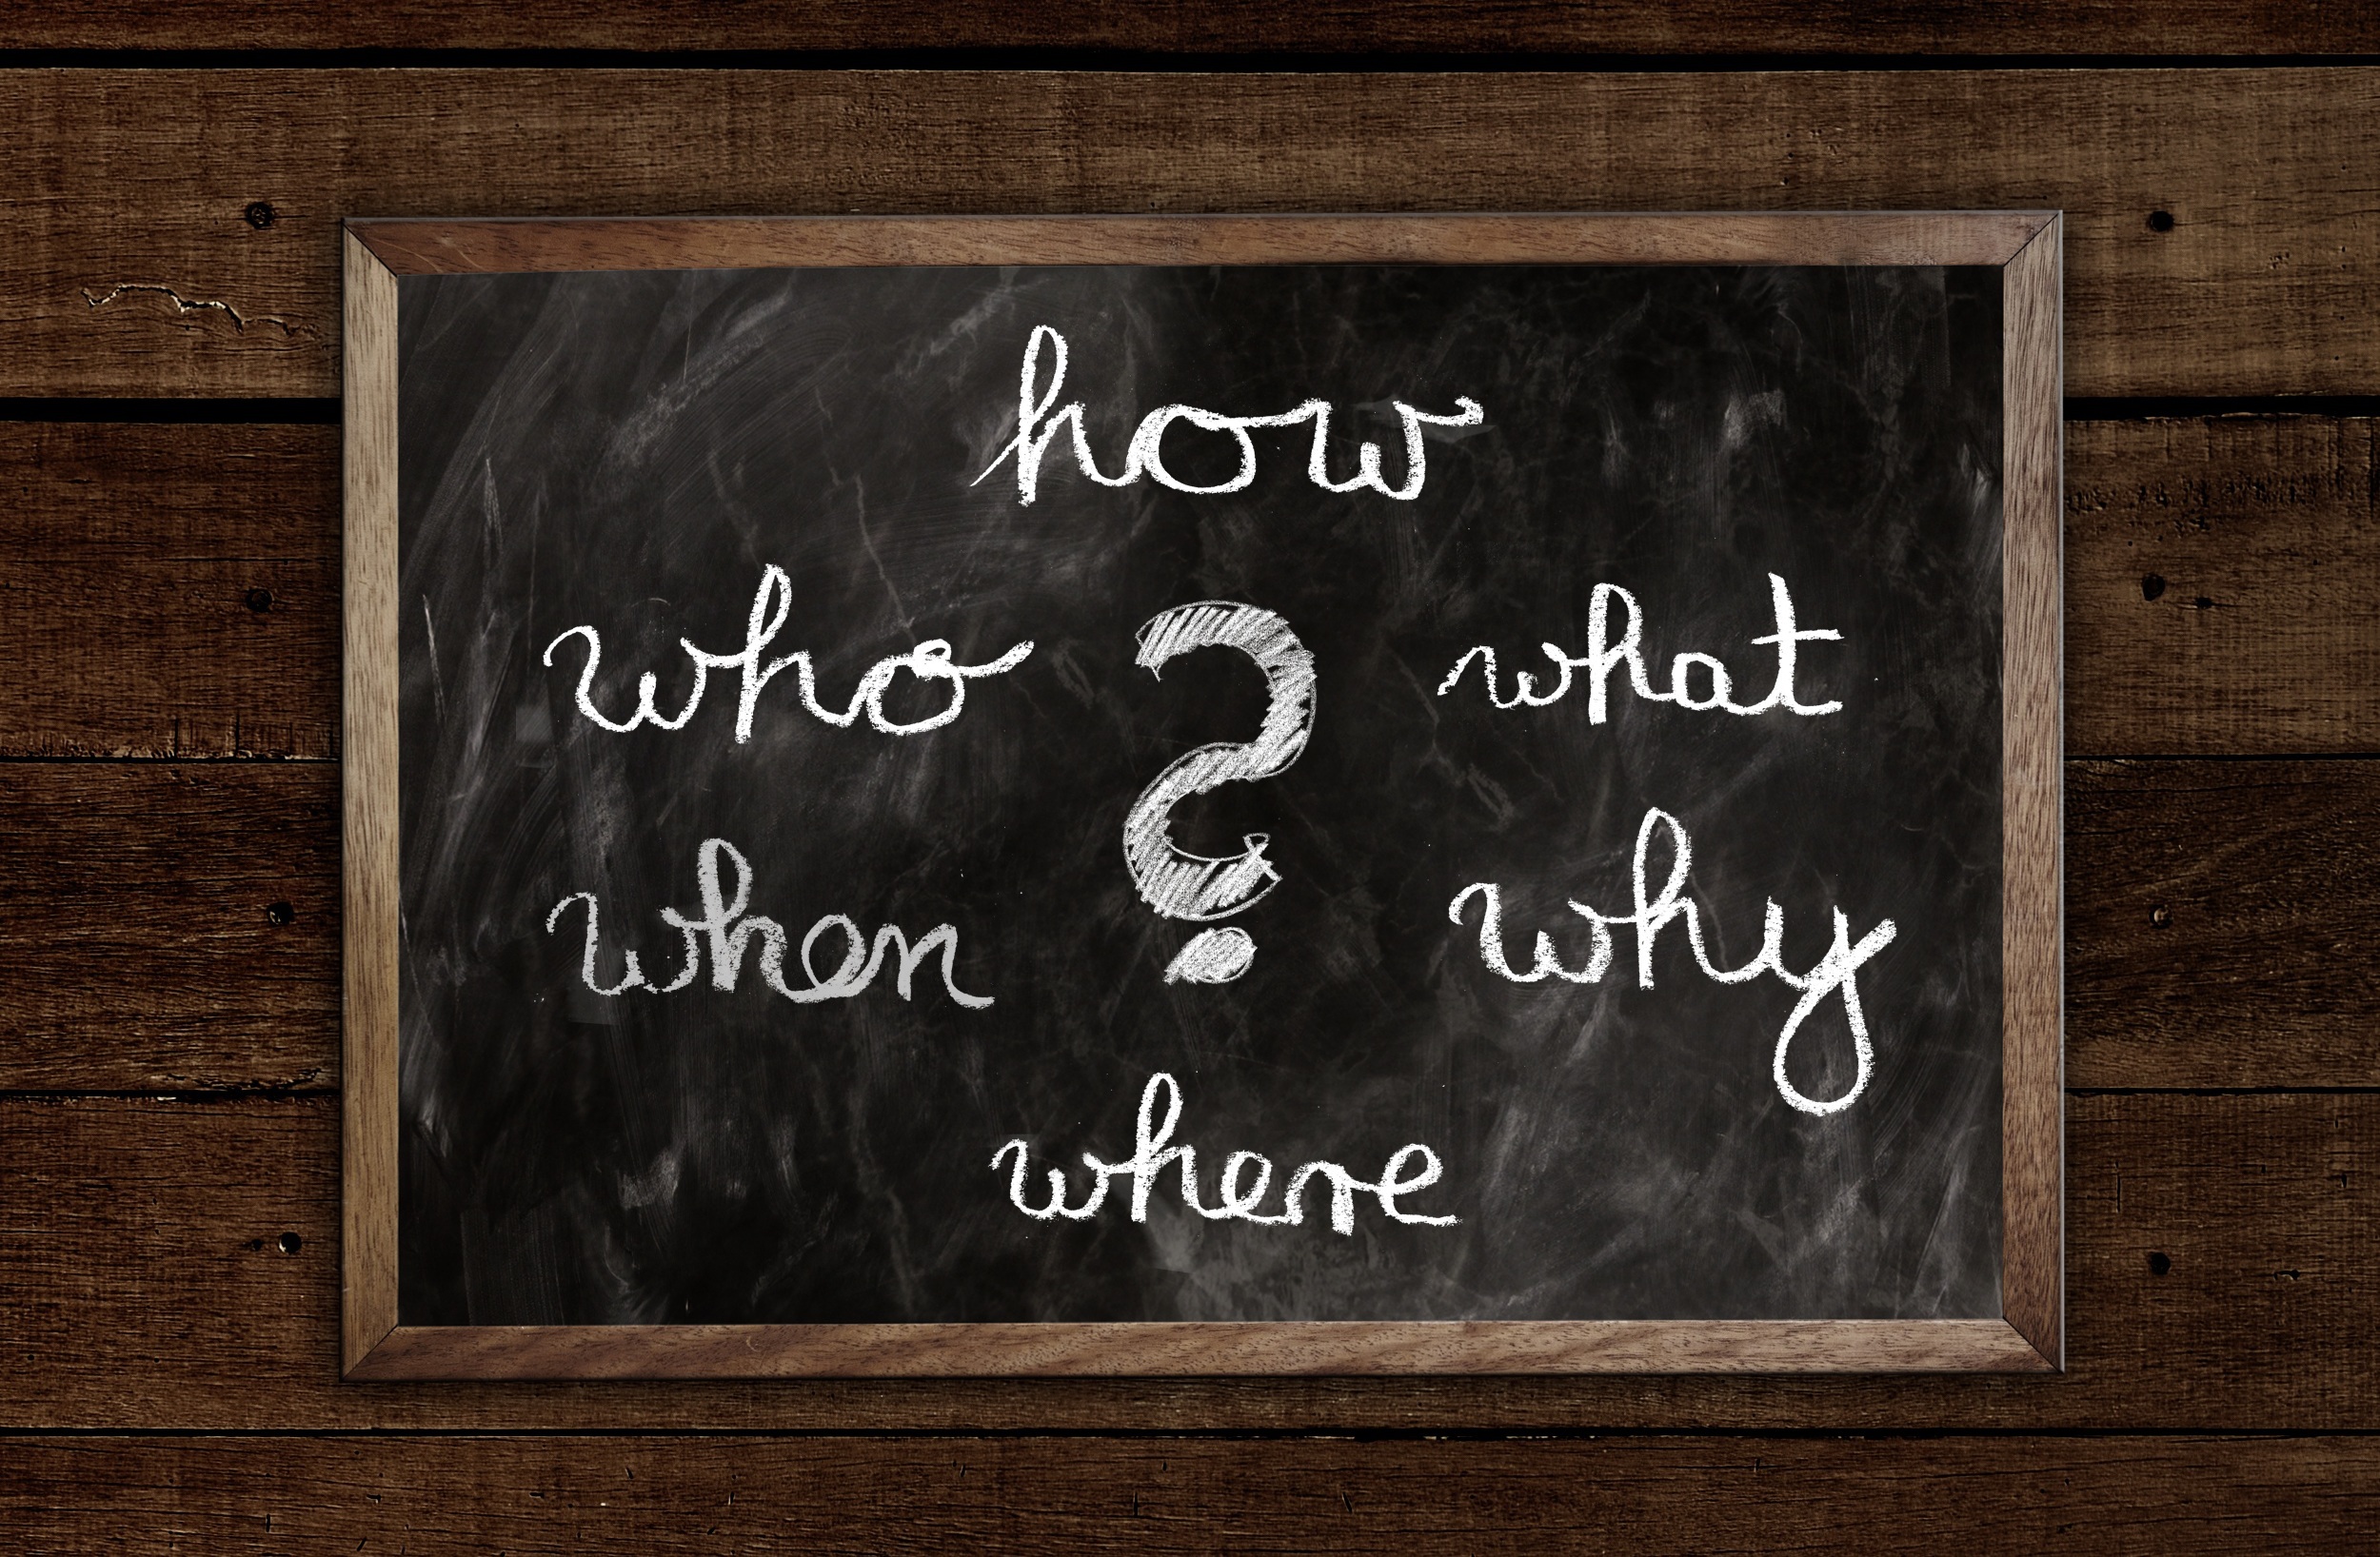 how
who ? what
when why
where